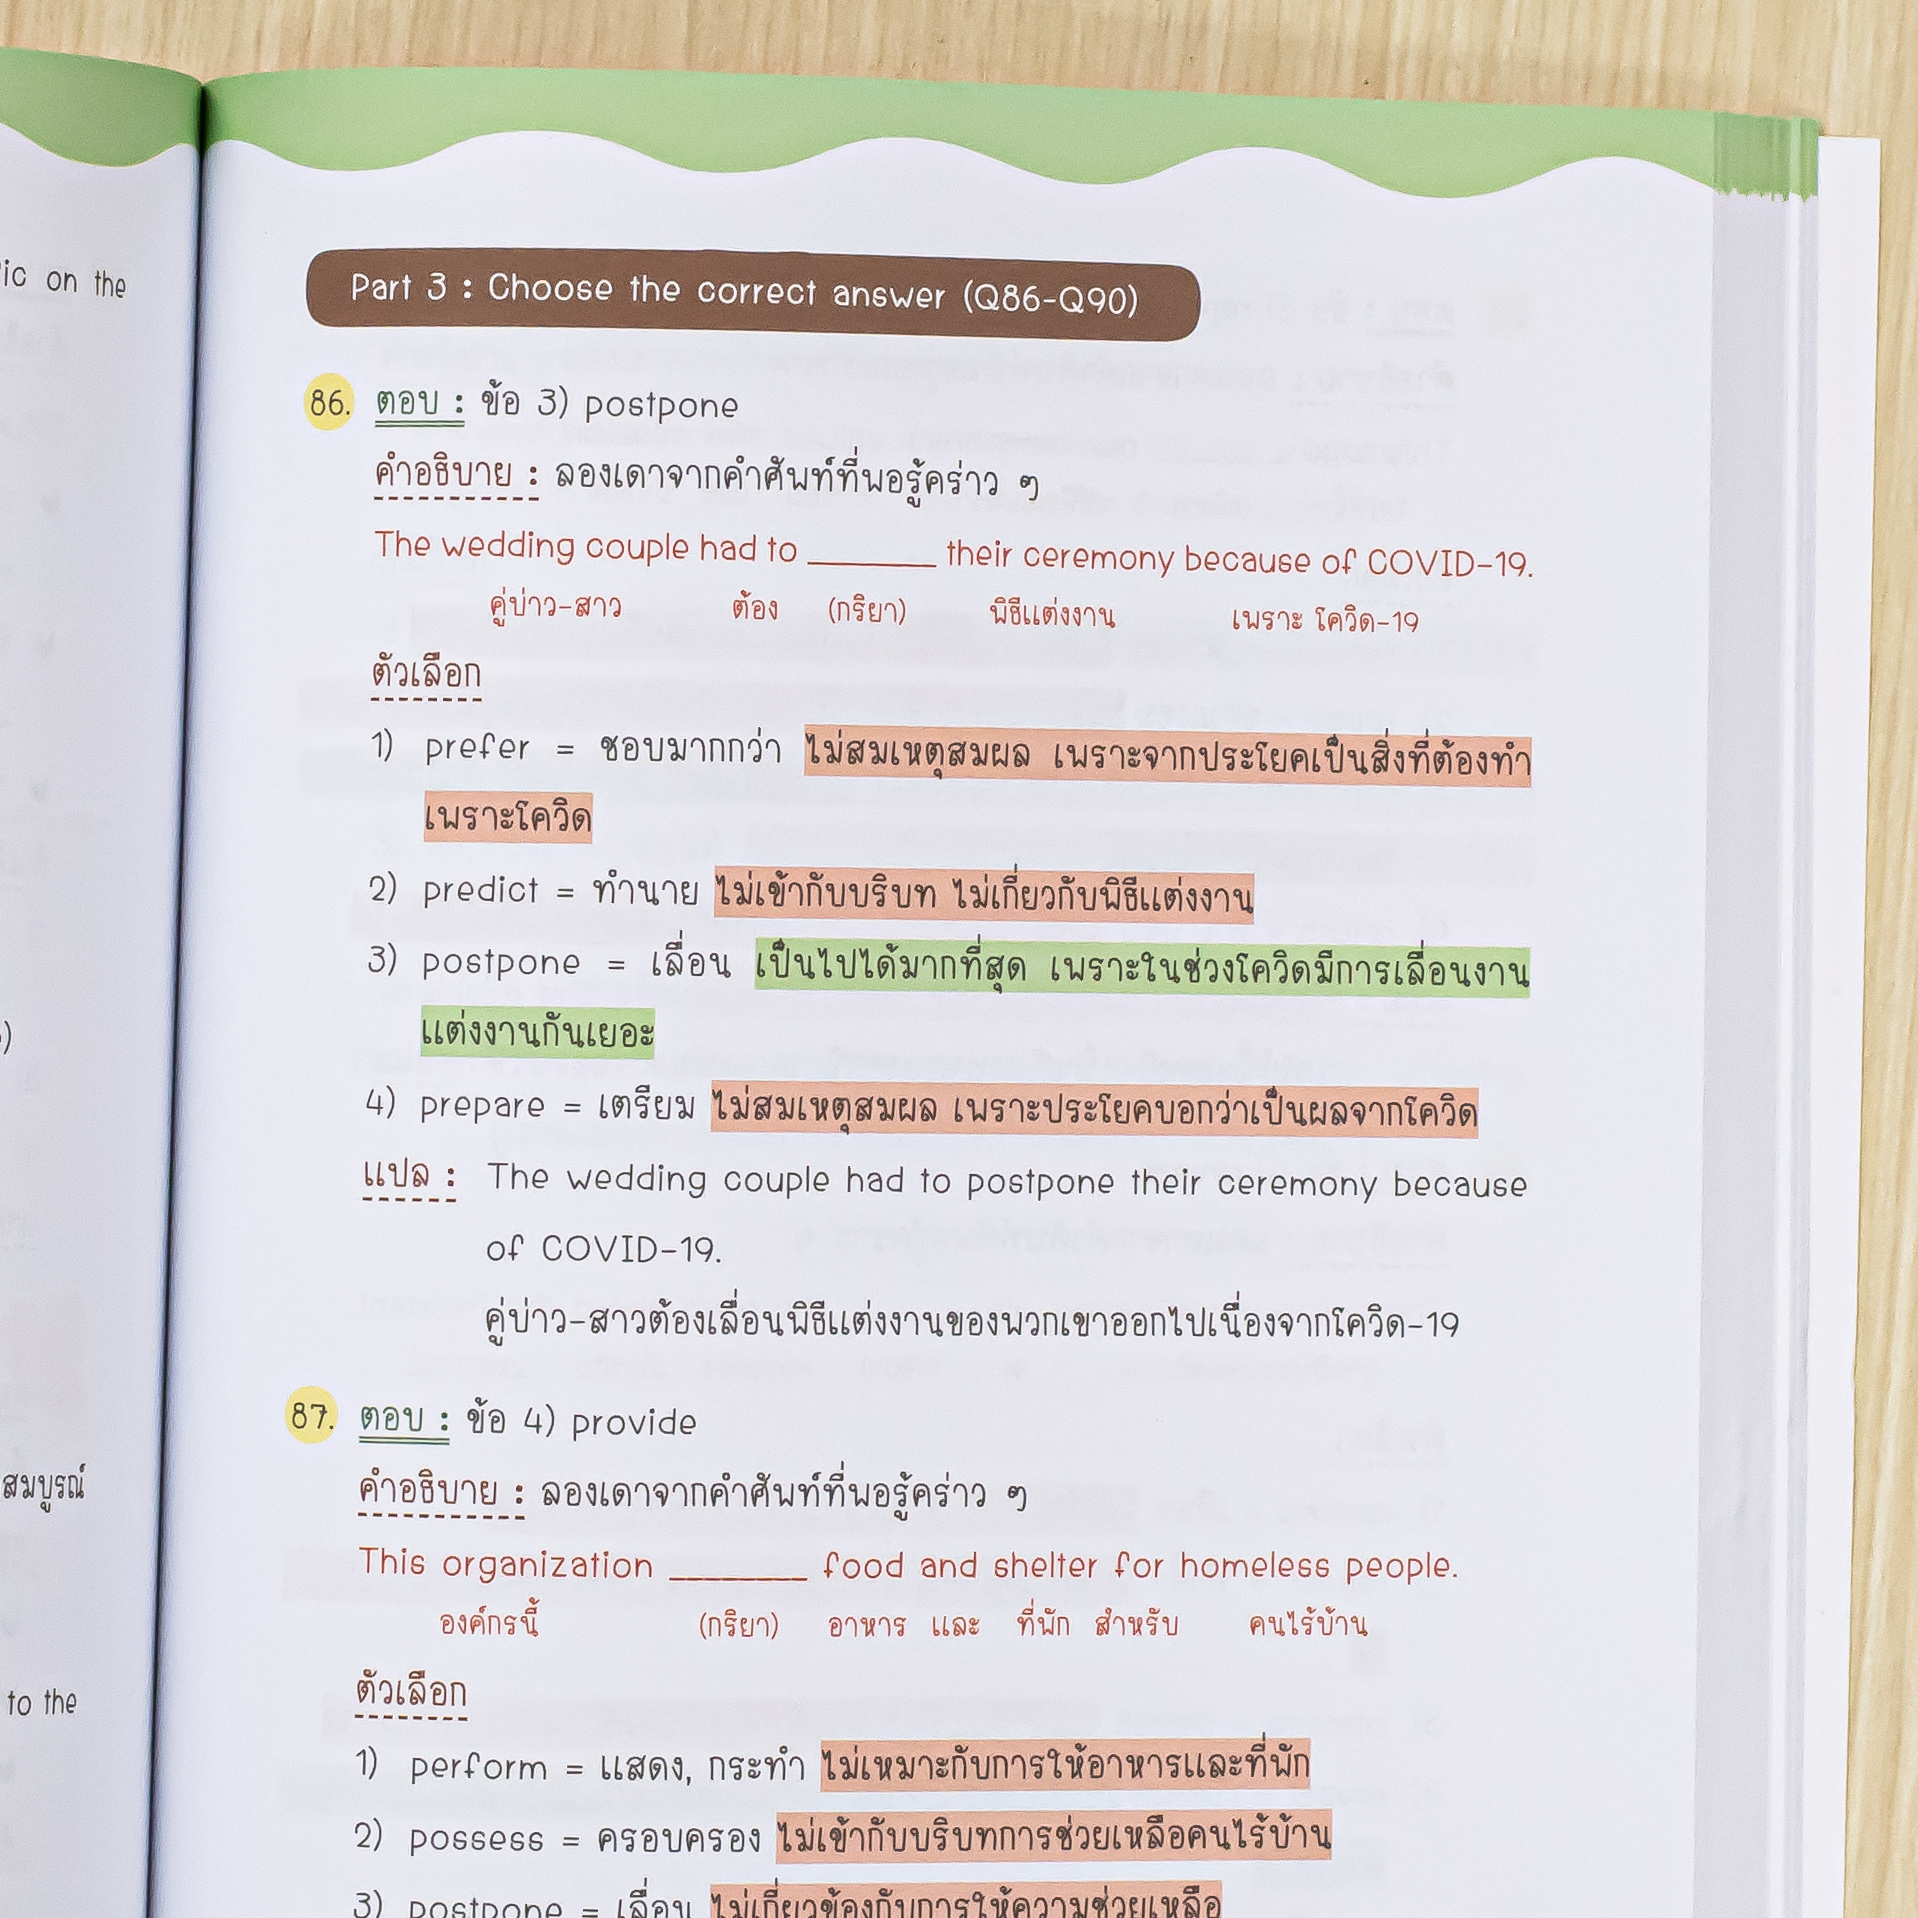 ic on the
สมบูรณ์
to the
Part 3 : Choose the correct answer (Q86-Q90)
86. ตอบ : ข้อ 3) postpone
คำอธิบาย : ลองเดาจากคำศัพท์ที่พอรู้คร่าว ๆ
The wedding couple had to ________ their ceremony because of COVID-19.
คู่บ่าว-สาว ต้อง (กริยา) พิธีแต่งงาน เพราะ โควิด-19
ตัวเลือก
1) prefer = ชอบมากกว่า ไม่สมเหตุสมผล เพราะจากประโยคเป็นสิ่งที่ต้องทำ
เพราะโควิด
2) predict = ทำนาย ไม่เข้ากับบริบท ไม่เกี่ยวกับพิธีแต่งงาน
3) postpone = เลื่อน เป็นไปได้มากที่สุด เพราะในช่วงโควิดมีการเลื่อนงาน
แต่งงานกันเยอะ
4) prepare = เตรียม ไม่สมเหตุสมผล เพราะประโยคบอกว่าเป็นผลจากโควิด
แปล : The wedding couple had to postpone their ceremony because
of COVID-19.
คู่บ่าว-สาวต้องเลื่อนพิธีแต่งงานของพวกเขาออกไปเนื่องจากโควิด-19
87. ตอบ : ข้อ 4) provide
คำอธิบาย : ลองเดาจากคำศัพท์ที่พอรู้คร่าว ๆ
This organization ________ food and shelter for homeless people.
องค์กรนี้ (กริยา) อาหาร และ ที่พัก สำหรับ คนไร้บ้าน
ตัวเลือก
1) perform = แสดง, กระทำ ไม่เหมาะกับการให้อาหารและที่พัก
2) possess = ครอบครอง ไม่เข้ากับบริบทการช่วยเหลือคนไร้บ้าน
3) postpone = เลื่อน ไม่เกี่ยวข้องกับการให้ความช่วยเหลือ